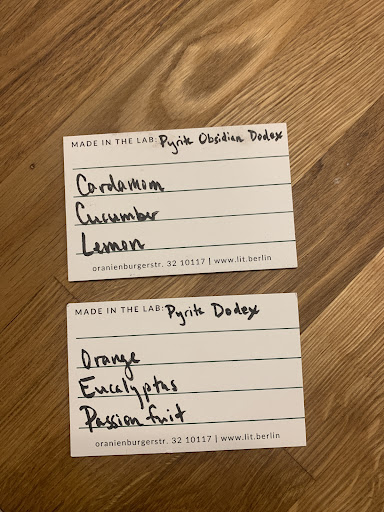 MADE IN THE LAB: Pyrite Obsidian Dodex
Cardamom
Cucumber
Lemon
oranienburgerstr. 32 10117 | www.lit.berlin
MADE IN THE LAB: Pyrite Dodex
Orange
Eucalyptus
Passion fruit
oranienburgerstr. 32 10117 | www.lit.berlin